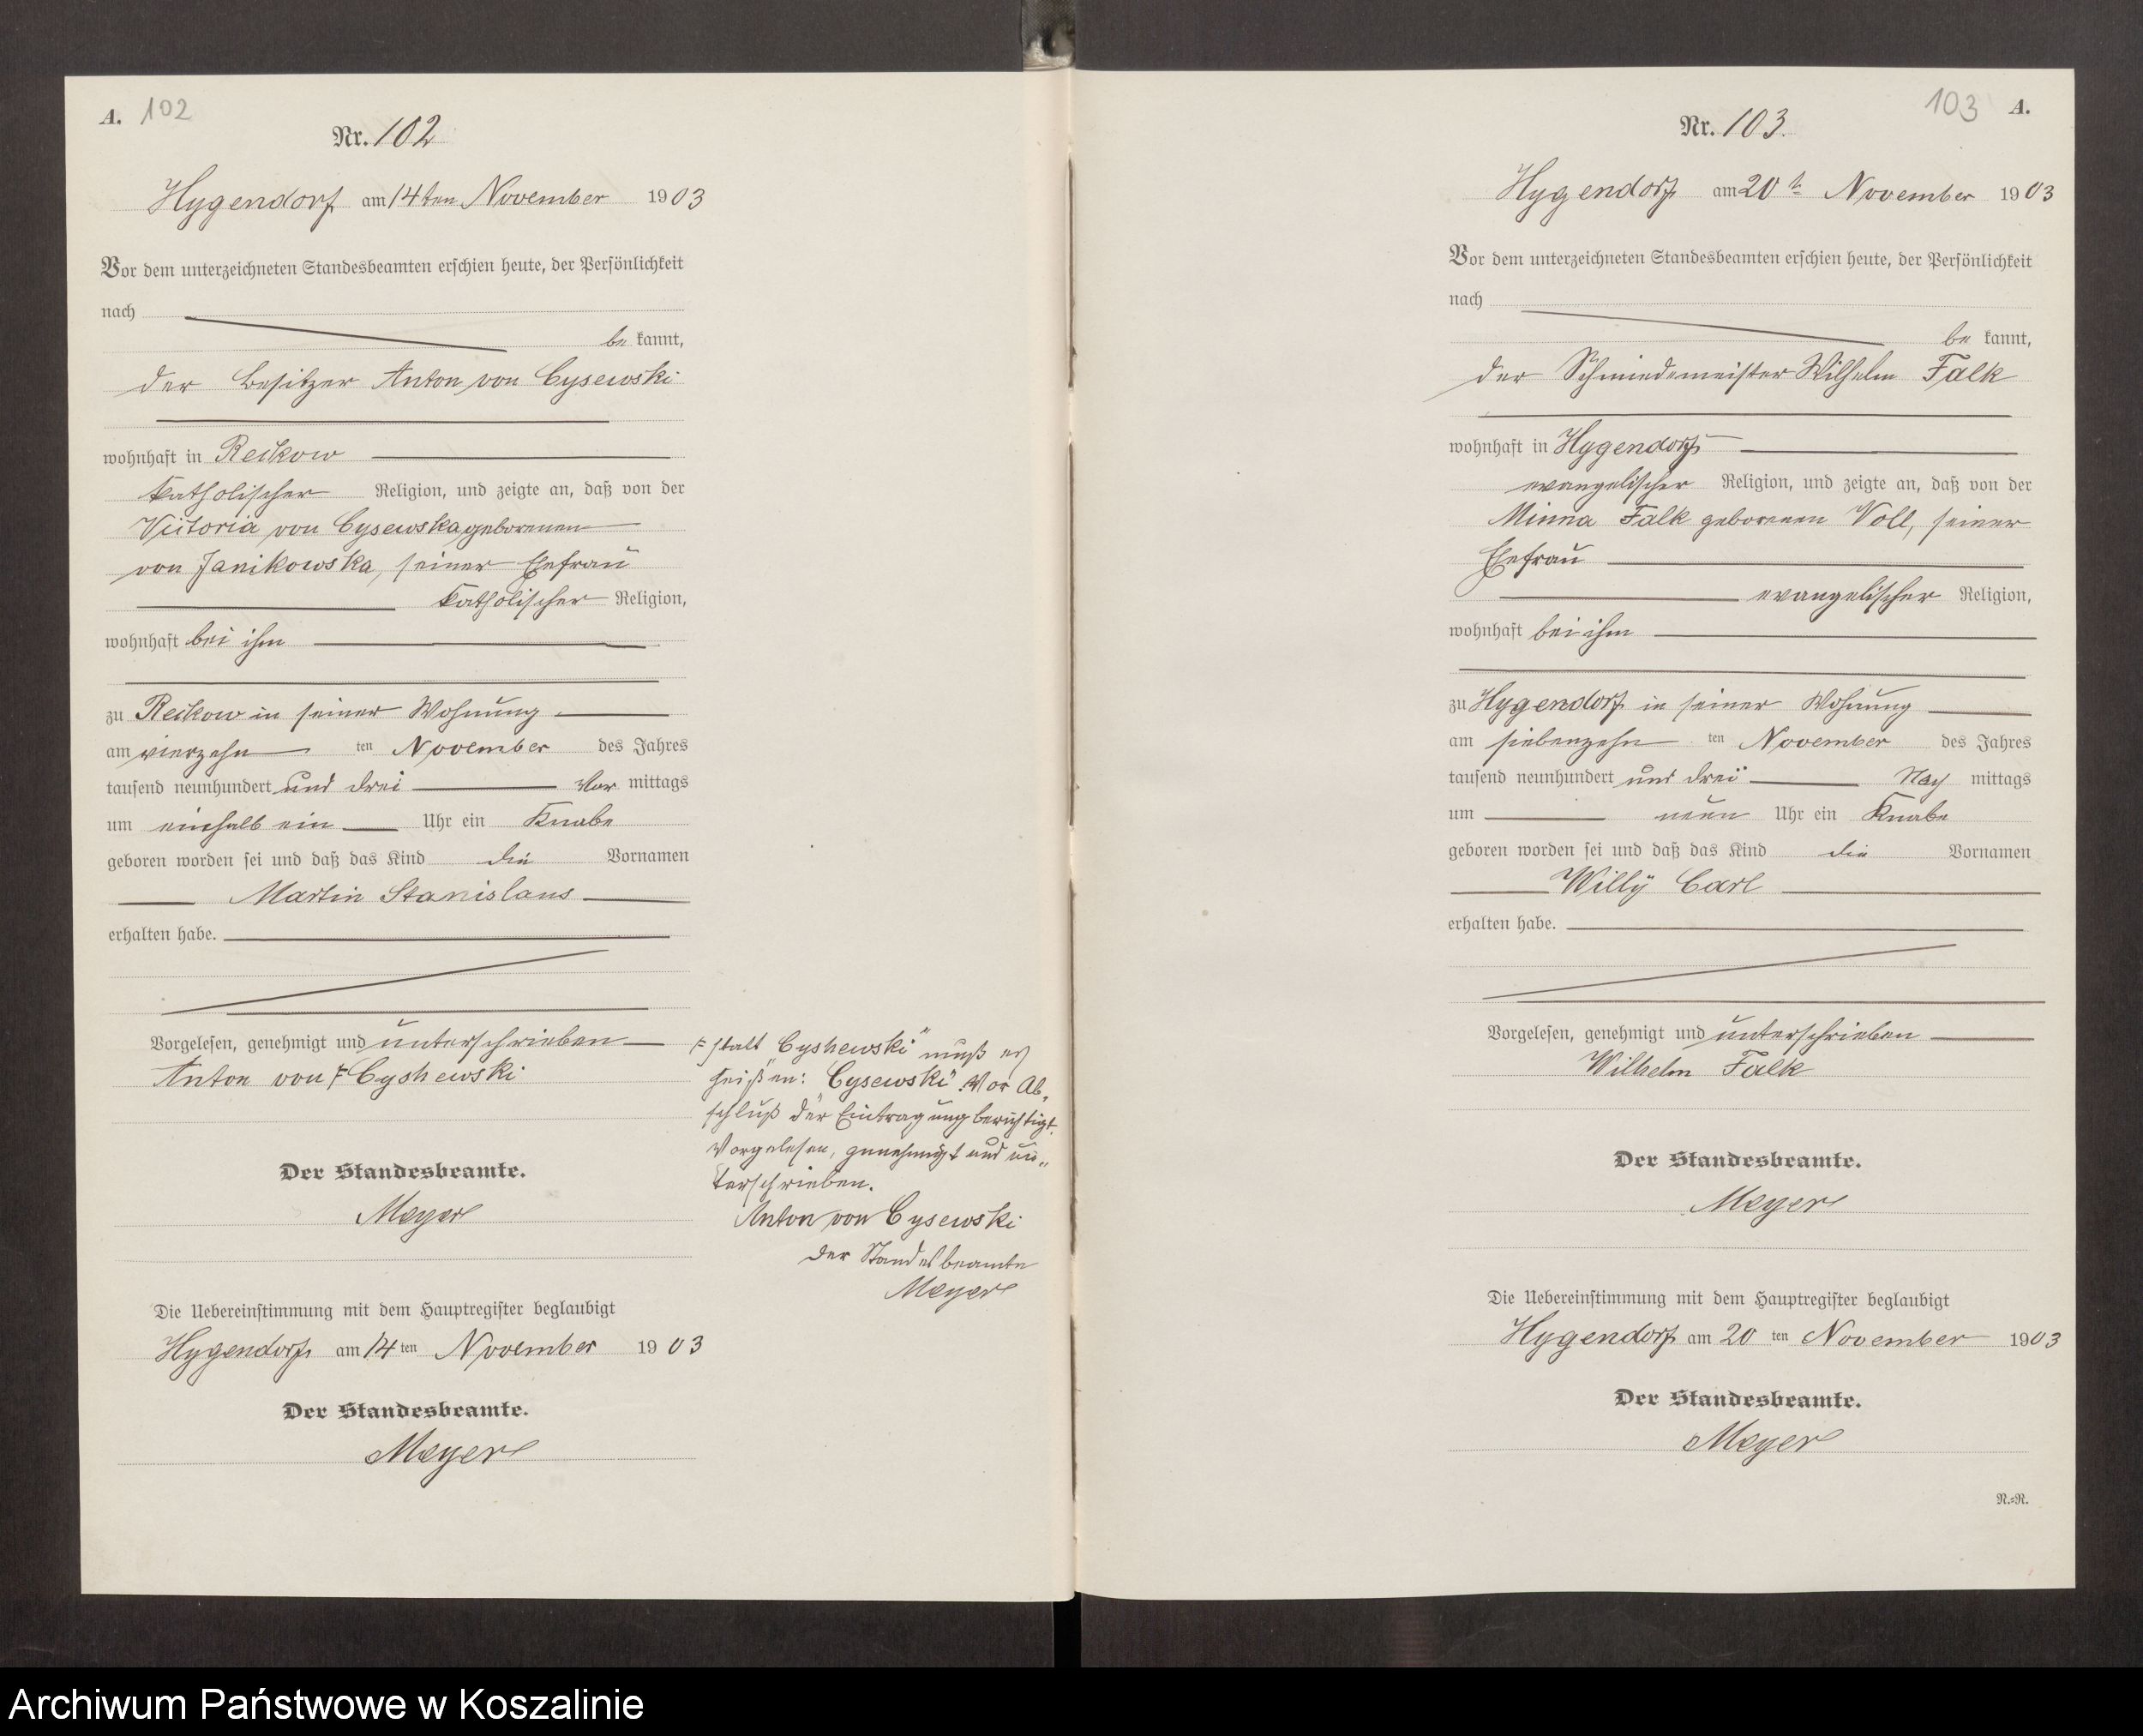 A. 102
Nr. 102
Hygendorf am 14ten November 1903
Vor dem unterzeichneten Standesbeamten erschien heute, der Persönlichkeit
nach
be kannt,
der Besitzer Anton von Cysewski
wohnhaft in Reckow
katholischer Religion, und zeigte an, daß von der
Victoria von Cysewska geborenen
von Janikowska, seiner Ehefrau
katholischer Religion,
wohnhaft bei ihm
zu Reckow in seiner Wohnung
am vierzehn ten November des Jahres
tausend neunhundert und drei Vor mittags
um einhalb ein Uhr ein Knabe
geboren worden sei und daß das Kind die Vornamen
Martin Stanislaus
erhalten habe.
Vorgelesen, genehmigt und unterschrieben
Anton von F Cyshewski
Der Standesbeamte.
Meyer
Die Uebereinstimmung mit dem Hauptregister beglaubigt
Hygendorf am 14 ten November 1903
Der Standesbeamte.
Meyer
F statt "Cyshewski" muß es
heißen: "Cysewski". Vor Ab-
schluß der Eintragung berichtigt.
Vorgelesen, genehmigt und un-
terschrieben.
Anton von Cysewski
Der Standesbeamte
Meyer
103 A.
Nr. 103.
Hygendorf am 20 ten November 1903
Vor dem unterzeichneten Standesbeamten erschien heute, der Persönlichkeit
nach
be kannt,
der Schmiedemeister Wilhelm Falk
wohnhaft in Hygendorf
evangelischer Religion, und zeigte an, daß von der
Minna Falk geborenen Voll, seiner
Ehefrau
evangelischer Religion,
wohnhaft bei ihm
zu Hygendorf in seiner Wohnung
am siebenzehn ten November des Jahres
tausend neunhundert und drei Nach mittags
um neun Uhr ein Knabe
geboren worden sei und daß das Kind die Vornamen
Willÿ Carl
erhalten habe.
Vorgelesen, genehmigt und unterschrieben
Wilhelm Falk
Der Standesbeamte.
Meyer
Die Uebereinstimmung mit dem Hauptregister beglaubigt
Hygendorf am 20 ten November 1903
Der Standesbeamte.
Meyer
N.=R.
Archiwum Państwowe w Koszalinie